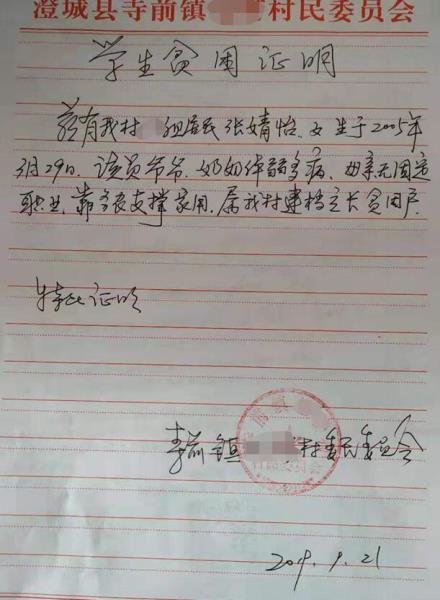 澄城县寺前镇 村民委员会
学生贫困证明
兹有我村 组居民张婧怡，女生于2005年
3月29日，该员爷爷、奶奶体弱多病，母亲无固定
职业，靠 支撑家用，属我村建档立卡贫困户。
特此证明
寺前镇 村民委员会
2019.9.21